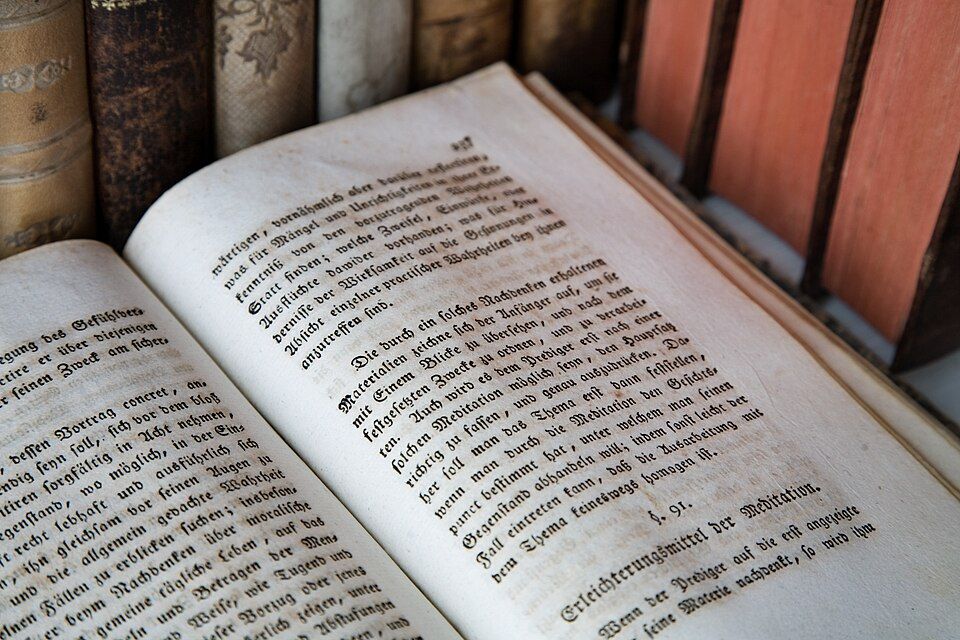 egung des Gefühlver=
ertire er über diejenigen
er seinen Zweck am sicher=
dessen Vortrag concret, an=
ndig seyn soll, sich vor dem bloß
tiren sorgfältig in Acht nehmen,
egenstand, wo möglich, in der Eine
recht lebhaft und ausführlich sich
ihn gleichsam vor seinen Augen in
und die allgemein gedachte Wahrheit
nen Fällen zu erblicken suchen; insbeson=
er beym Nachdenken über moralische
gemeine tägliche Leben, auf das
ndeln und Betragen der Men=
und Weise, wie Tugend und
dieser Vorzug oder jenes
erlich zeigen, unter
und Abstufungen
und
wärtigen, vornähmlich aber darüber reflectiren,
was für Mängel und Unrichtigkeiten in ihrer Er=
kenntniß von den vorzutragenden Wahrheiten
Statt finden; welche Zweifel, Einwürfe, oder
Ausflüchte dawider vorhanden; was für Hin=
dernisse der Wirksamkeit auf die Gesinnungen in
Absicht einzelner practischer Wahrheiten bey ihnen
anzutreffen sind.
Die durch ein solches Nachdenken erhaltenen
Materialien zeichne sich der Anfänger auf, um sie
mit Einem Blicke zu übersehen, und nach dem
festgesetzten Zwecke zu ordnen, und zu verarbei=
ten. Auch wird es dem Prediger erst nach einer
solchen Meditation möglich seyn, den Hauptsatz
richtig zu fassen, und genau auszudrücken. Da=
her soll man das Thema erst dann feststellen,
wenn man durch die Meditation den Gesichts=
punct bestimmt hat, unter welchem man seinen
Gegenstand abhandeln will, indem sonst leicht der
Fall eintreten kann, daß die Ausarbeitung mit
dem Thema keineswegs homogen ist.
§. 91.
Erleichterungsmittel der Meditation.
Wenn der Prediger auf die erst angezeigte
seine Materie nachdenkt, so wird ihm